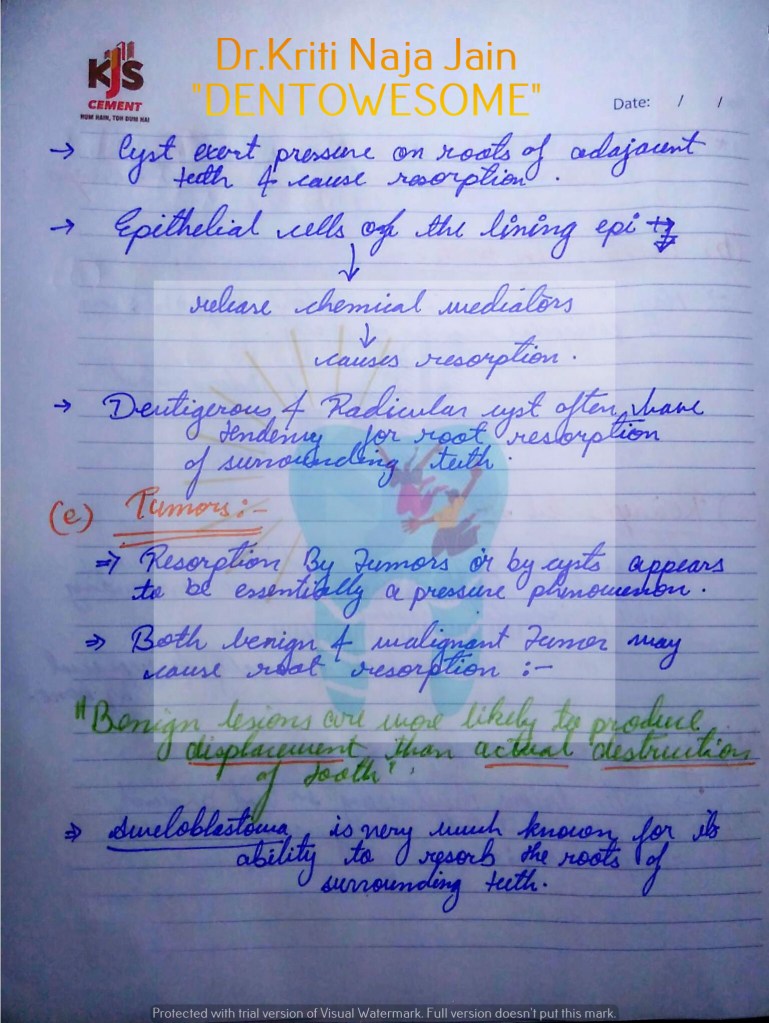 KJS
CEMENT
HUM HAIN, TOH DUM HAI
Dr.Kriti Naja Jain
"DENTOWESOME"
Date: / /
→ Cyst exert pressure on roots of adajacent
teeth & cause resorption.
→ Epithelial cells of the lining epi
↓
release chemical mediators
↓
causes resorption.
→ Dentigerous & Radicular cyst often have
tendency for root resorption
of surrounding teeth.
(e) Tumors:-
⇒ Resorption By Tumors or by cysts appears
to be essentially a pressure phenomenon.
⇒ Both benign & malignant Tumor may
cause root resorption :-
"Benign lesions are more likely to produce
displacement than actual destruction
of tooth".
⇒ Ameloblastoma is very much known for its
ability to resorb the roots of
surrounding teeth.
Protected with trial version of Visual Watermark. Full version doesn't put this mark.